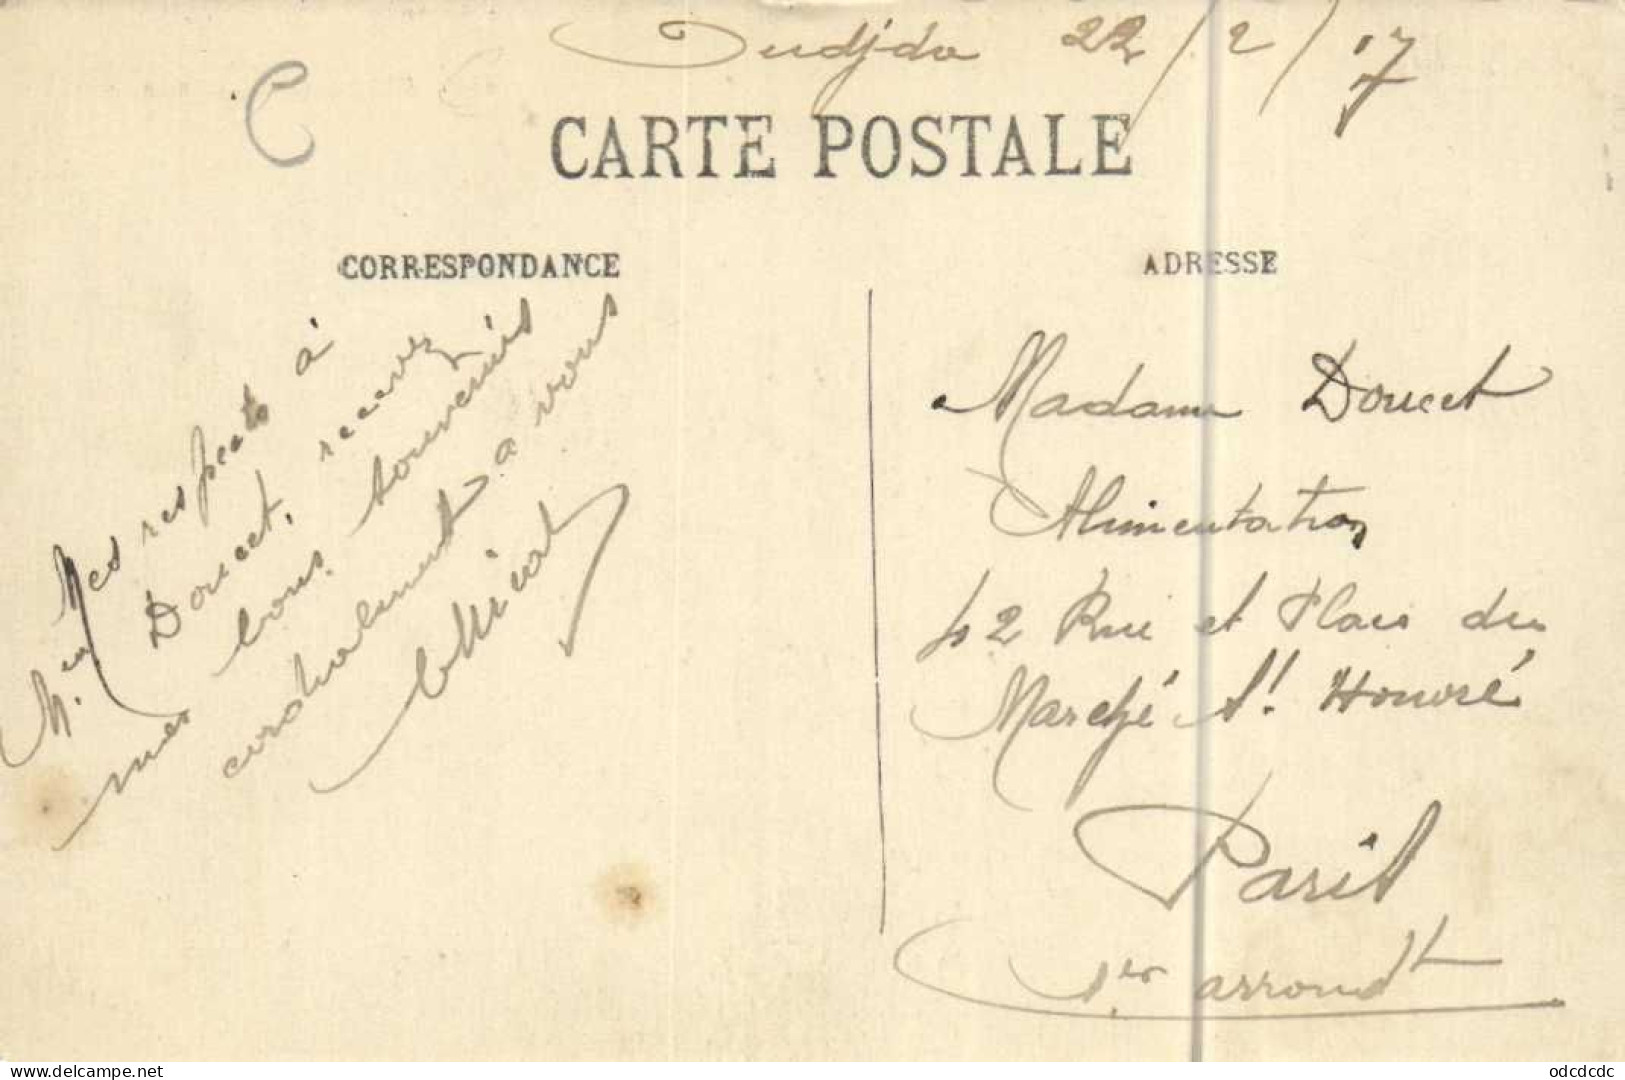 Oudjda 22/2/17
C
CARTE POSTALE
CORRESPONDANCE
ADRESSE
Mes respects à
Mr Doucet, recevez
mes bons souvenirs
cordialement à vous
Madame Doucet
Alimentation
42 Rue et Place du
Marché St Honoré
Paris
1er arrondt
delcampe.net
odcdcdc